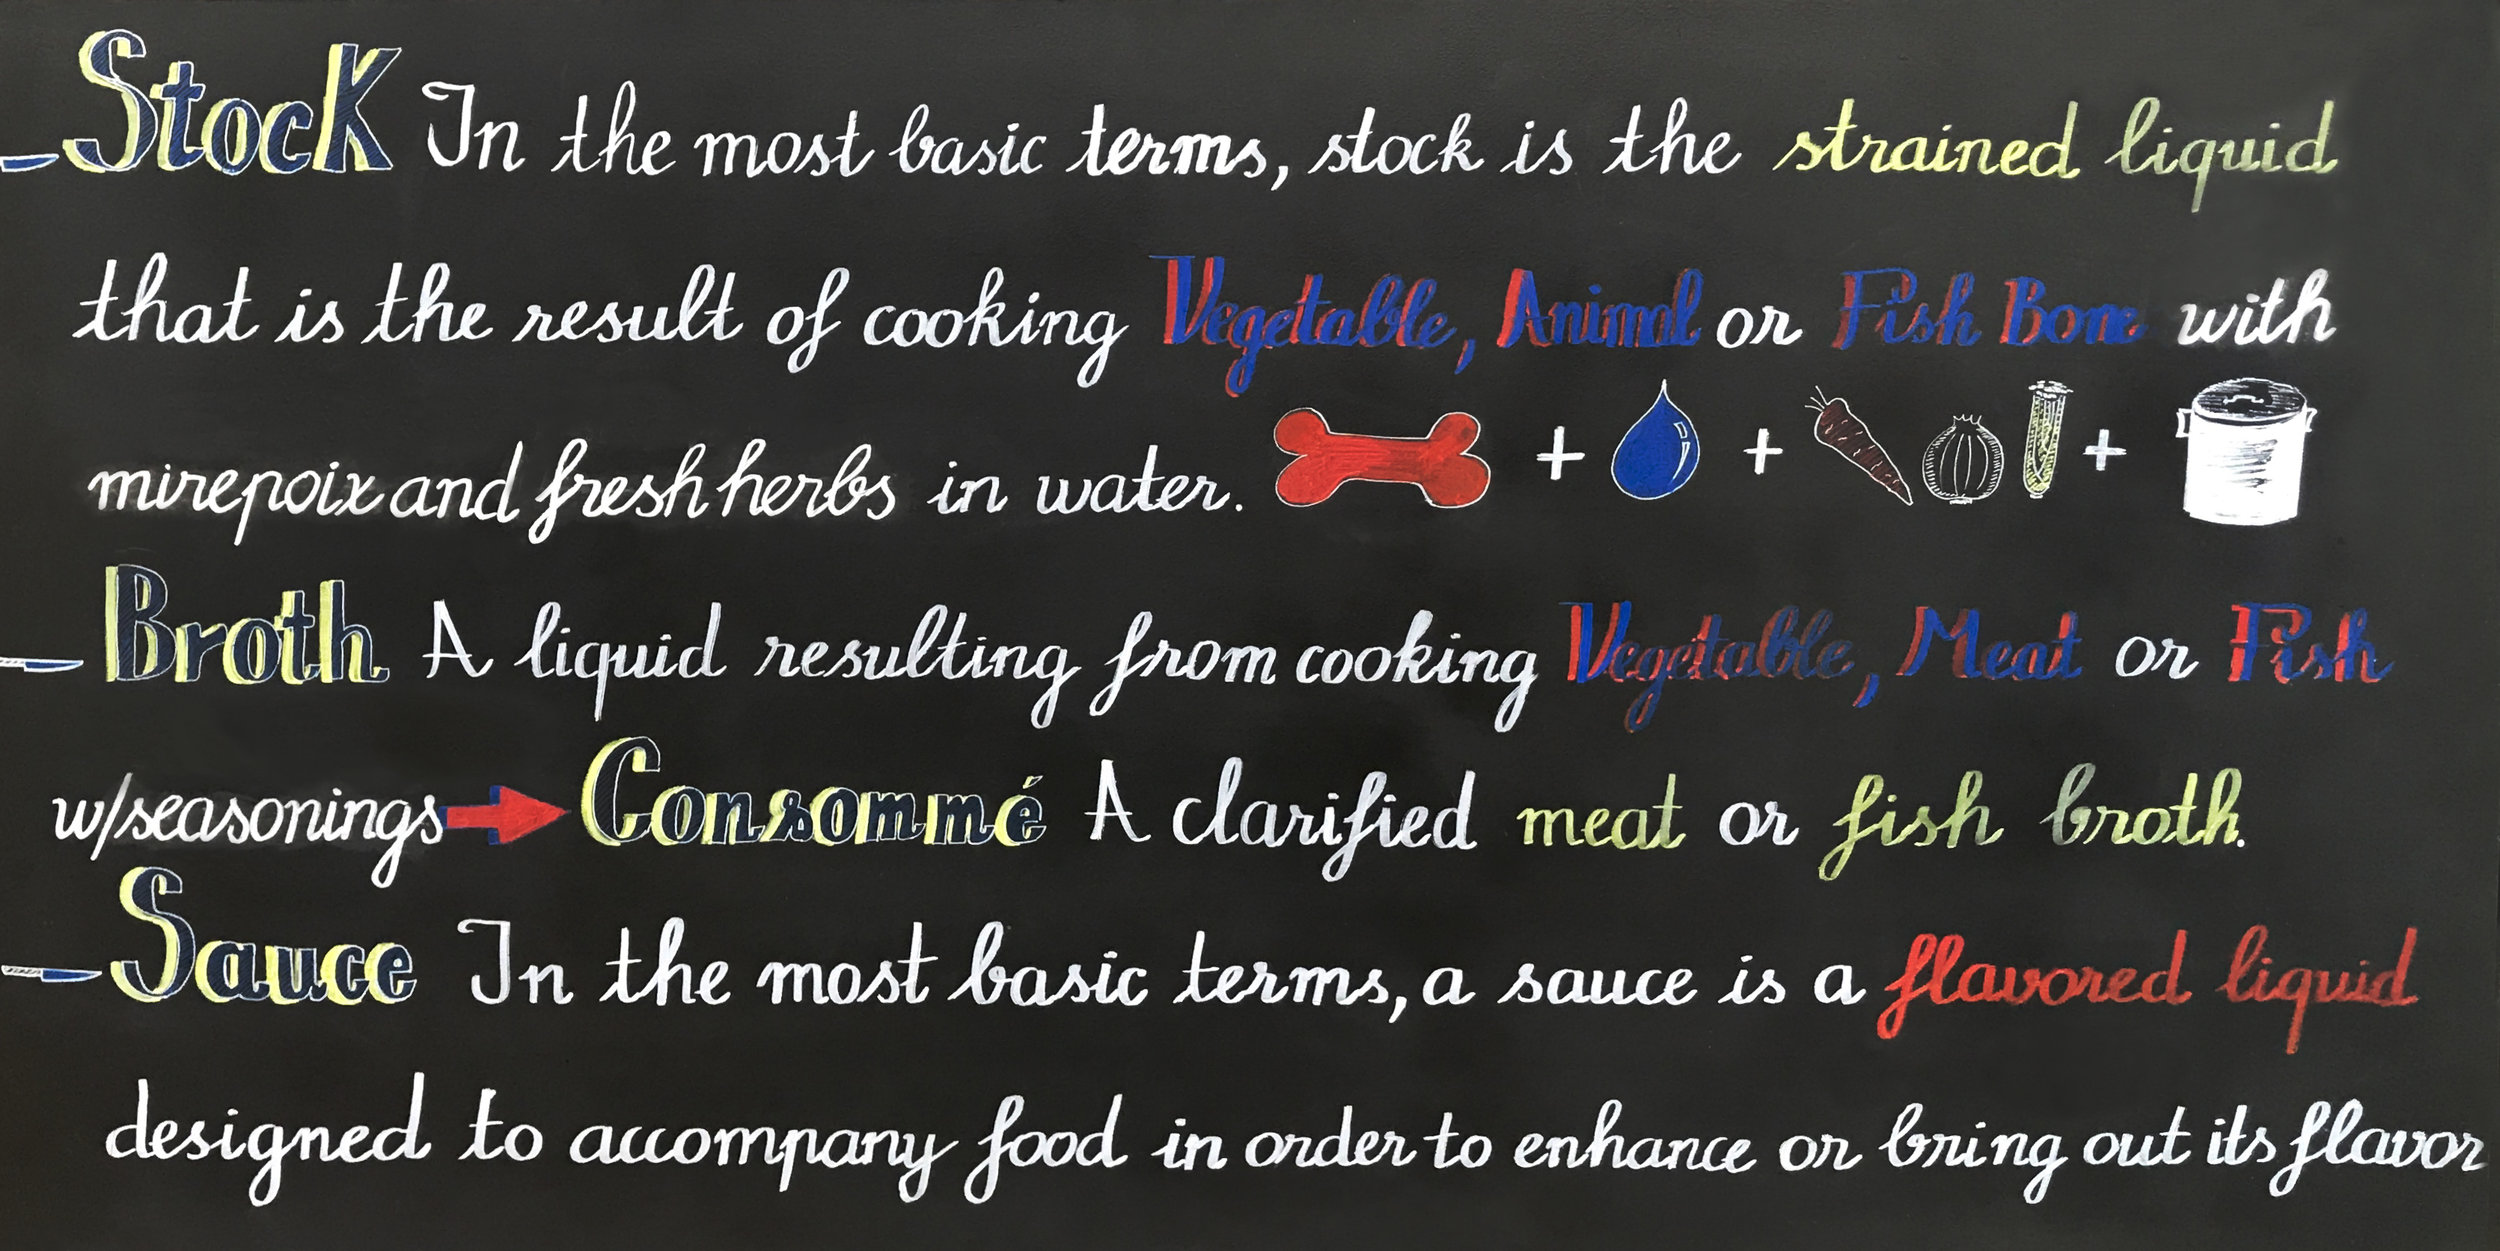 Stock In the most basic terms, stock is the strained liquid
that is the result of cooking Vegetable, Animal or Fish Bone with
mirepoix and fresh herbs in water. + + +
Broth A liquid resulting from cooking Vegetable, Meat or Fish
w/seasonings Consommé A clarified meat or fish broth.
Sauce In the most basic terms, a sauce is a flavored liquid
designed to accompany food in order to enhance or bring out its flavor